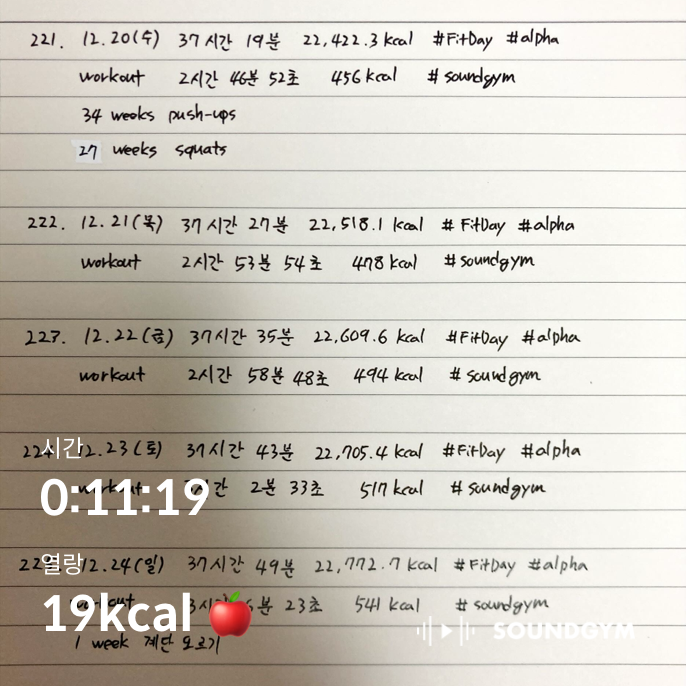 221. 12.20(수) 37시간 19분 22,422.3 kcal #FitDay #alpha
workout 2시간 46분 52초 456 kcal #soundgym
34 weeks push-ups
27 weeks squats
222. 12.21(목) 37시간 27분 22,518.1 kcal #FitDay #alpha
workout 2시간 53분 54초 478 kcal #soundgym
223. 12.22(금) 37시간 35분 22,609.6 kcal #FitDay #alpha
workout 2시간 58분 48초 494 kcal #soundgym
224. 12.23(토) 37시간 43분 22,705.4 kcal #FitDay #alpha
시간
workout 3시간 2분 33초 517 kcal #soundgym
0:11:19
12.24(일) 37시간 49분 22,772.7 kcal #FitDay #alpha
열량
3시간 6분 23초 541 kcal #soundgym
19kcal
SOUNDGYM
1 week 계단 오르기